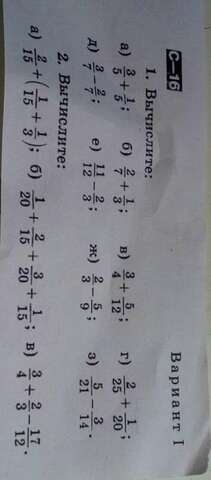 С—16 Вариант I
1. Вычислите:
а) 3/5 + 1/5; б) 2/7 + 1/3; в) 3/4 + 5/12; г) 2/25 + 1/20;
д) 3/7 − 2/7; е) 11/12 − 2/3; ж) 2/3 − 5/9; з) 5/21 − 3/14.
2. Вычислите:
а) 2/15 + (1/15 + 1/3); б) 1/20 + 2/15 + 3/20 + 1/15; в) 3/4 + 2/3 − 17/12.